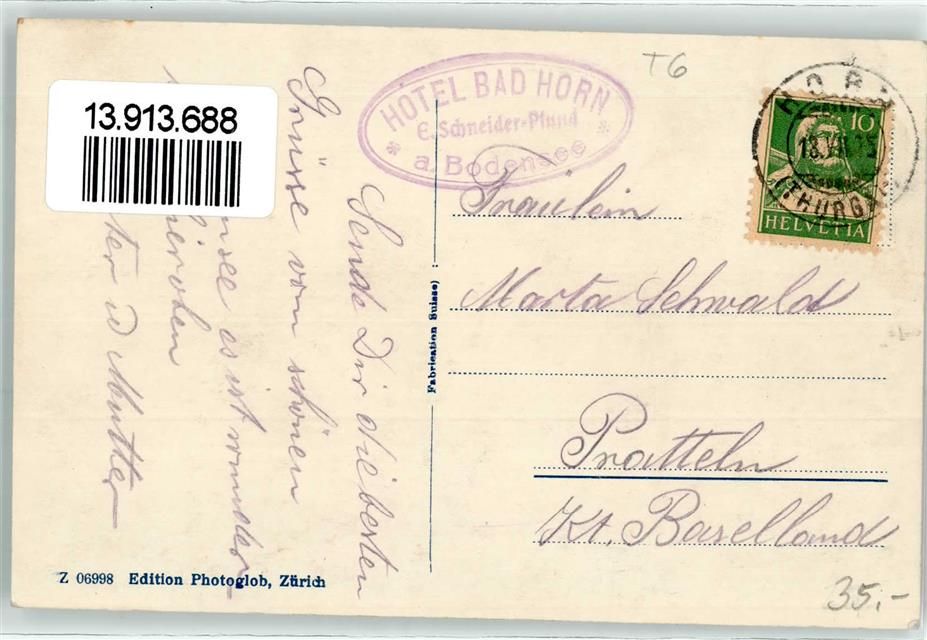 13.913.688
HOTEL BAD HORN
E. Schneider-Pfund
a. Bodensee
T6
HORN
(THURGAU)
10
HELVETIA
Sende Dir die besten
Grüsse vom schönen
es ist wunder-
u Mutter
Fräulein
Marta Schwald
Pratteln
Kt. Baselland
Fabrication Suisse)
Z 06998 Edition Photoglob, Zürich
35.-